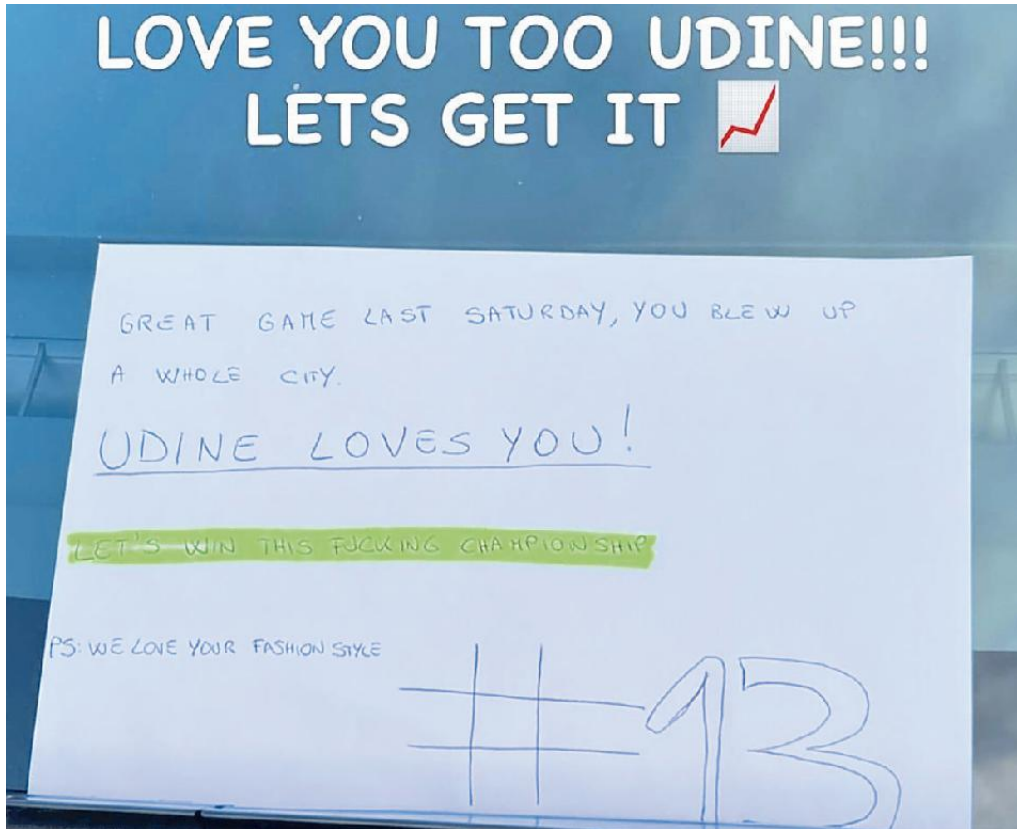 LOVE YOU TOO UDINE!!!
LETS GET IT 📈
GREAT GAME LAST SATURDAY, YOU BLEW UP
A WHOLE CITY.
UDINE LOVES YOU!
LET'S WIN THIS FUCKING CHAMPIONSHIP
PS: WE LOVE YOUR FASHION STYLE
#13